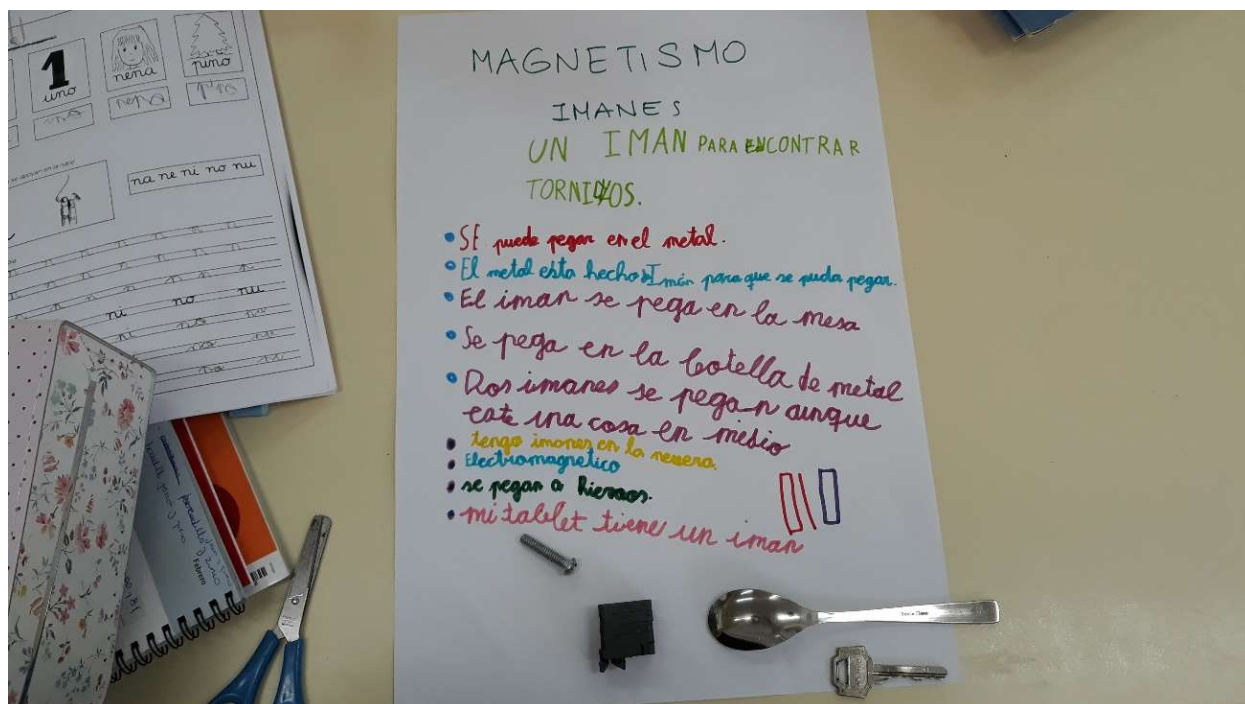 1
uno
nena
pino
nena
na ne ni no nu
ni no nu
Febrero
MAGNETISMO
IMANES
UN IMAN PARA ENCONTRAR
TORNILLOS.
SE puede pegar en el metal.
El metal esta hecho Imán para que se puda pegar.
El iman se pega en la mesa
Se pega en la botella de metal
Dos imanes se pegan aunque
este una cosa en medio
tengo imanes en la nevera.
Electromagnetico
se pegan a hierros.
mi tablet tiene un iman